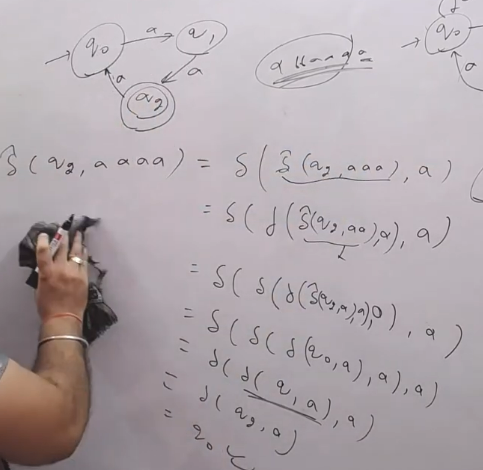 q₀ a q₁
a a
q₂
q₀
a
δ̂(q₂, aaaa) = δ(δ̂(q₂, aaa), a)
= δ(δ(δ̂(q₂, aa), a), a)
= δ(δ(δ(δ̂(q₂, a), a), a), a)
= δ(δ(δ(q₀, a), a), a)
= δ(δ(q₁, a), a)
= δ(q₂, a)
= q₀